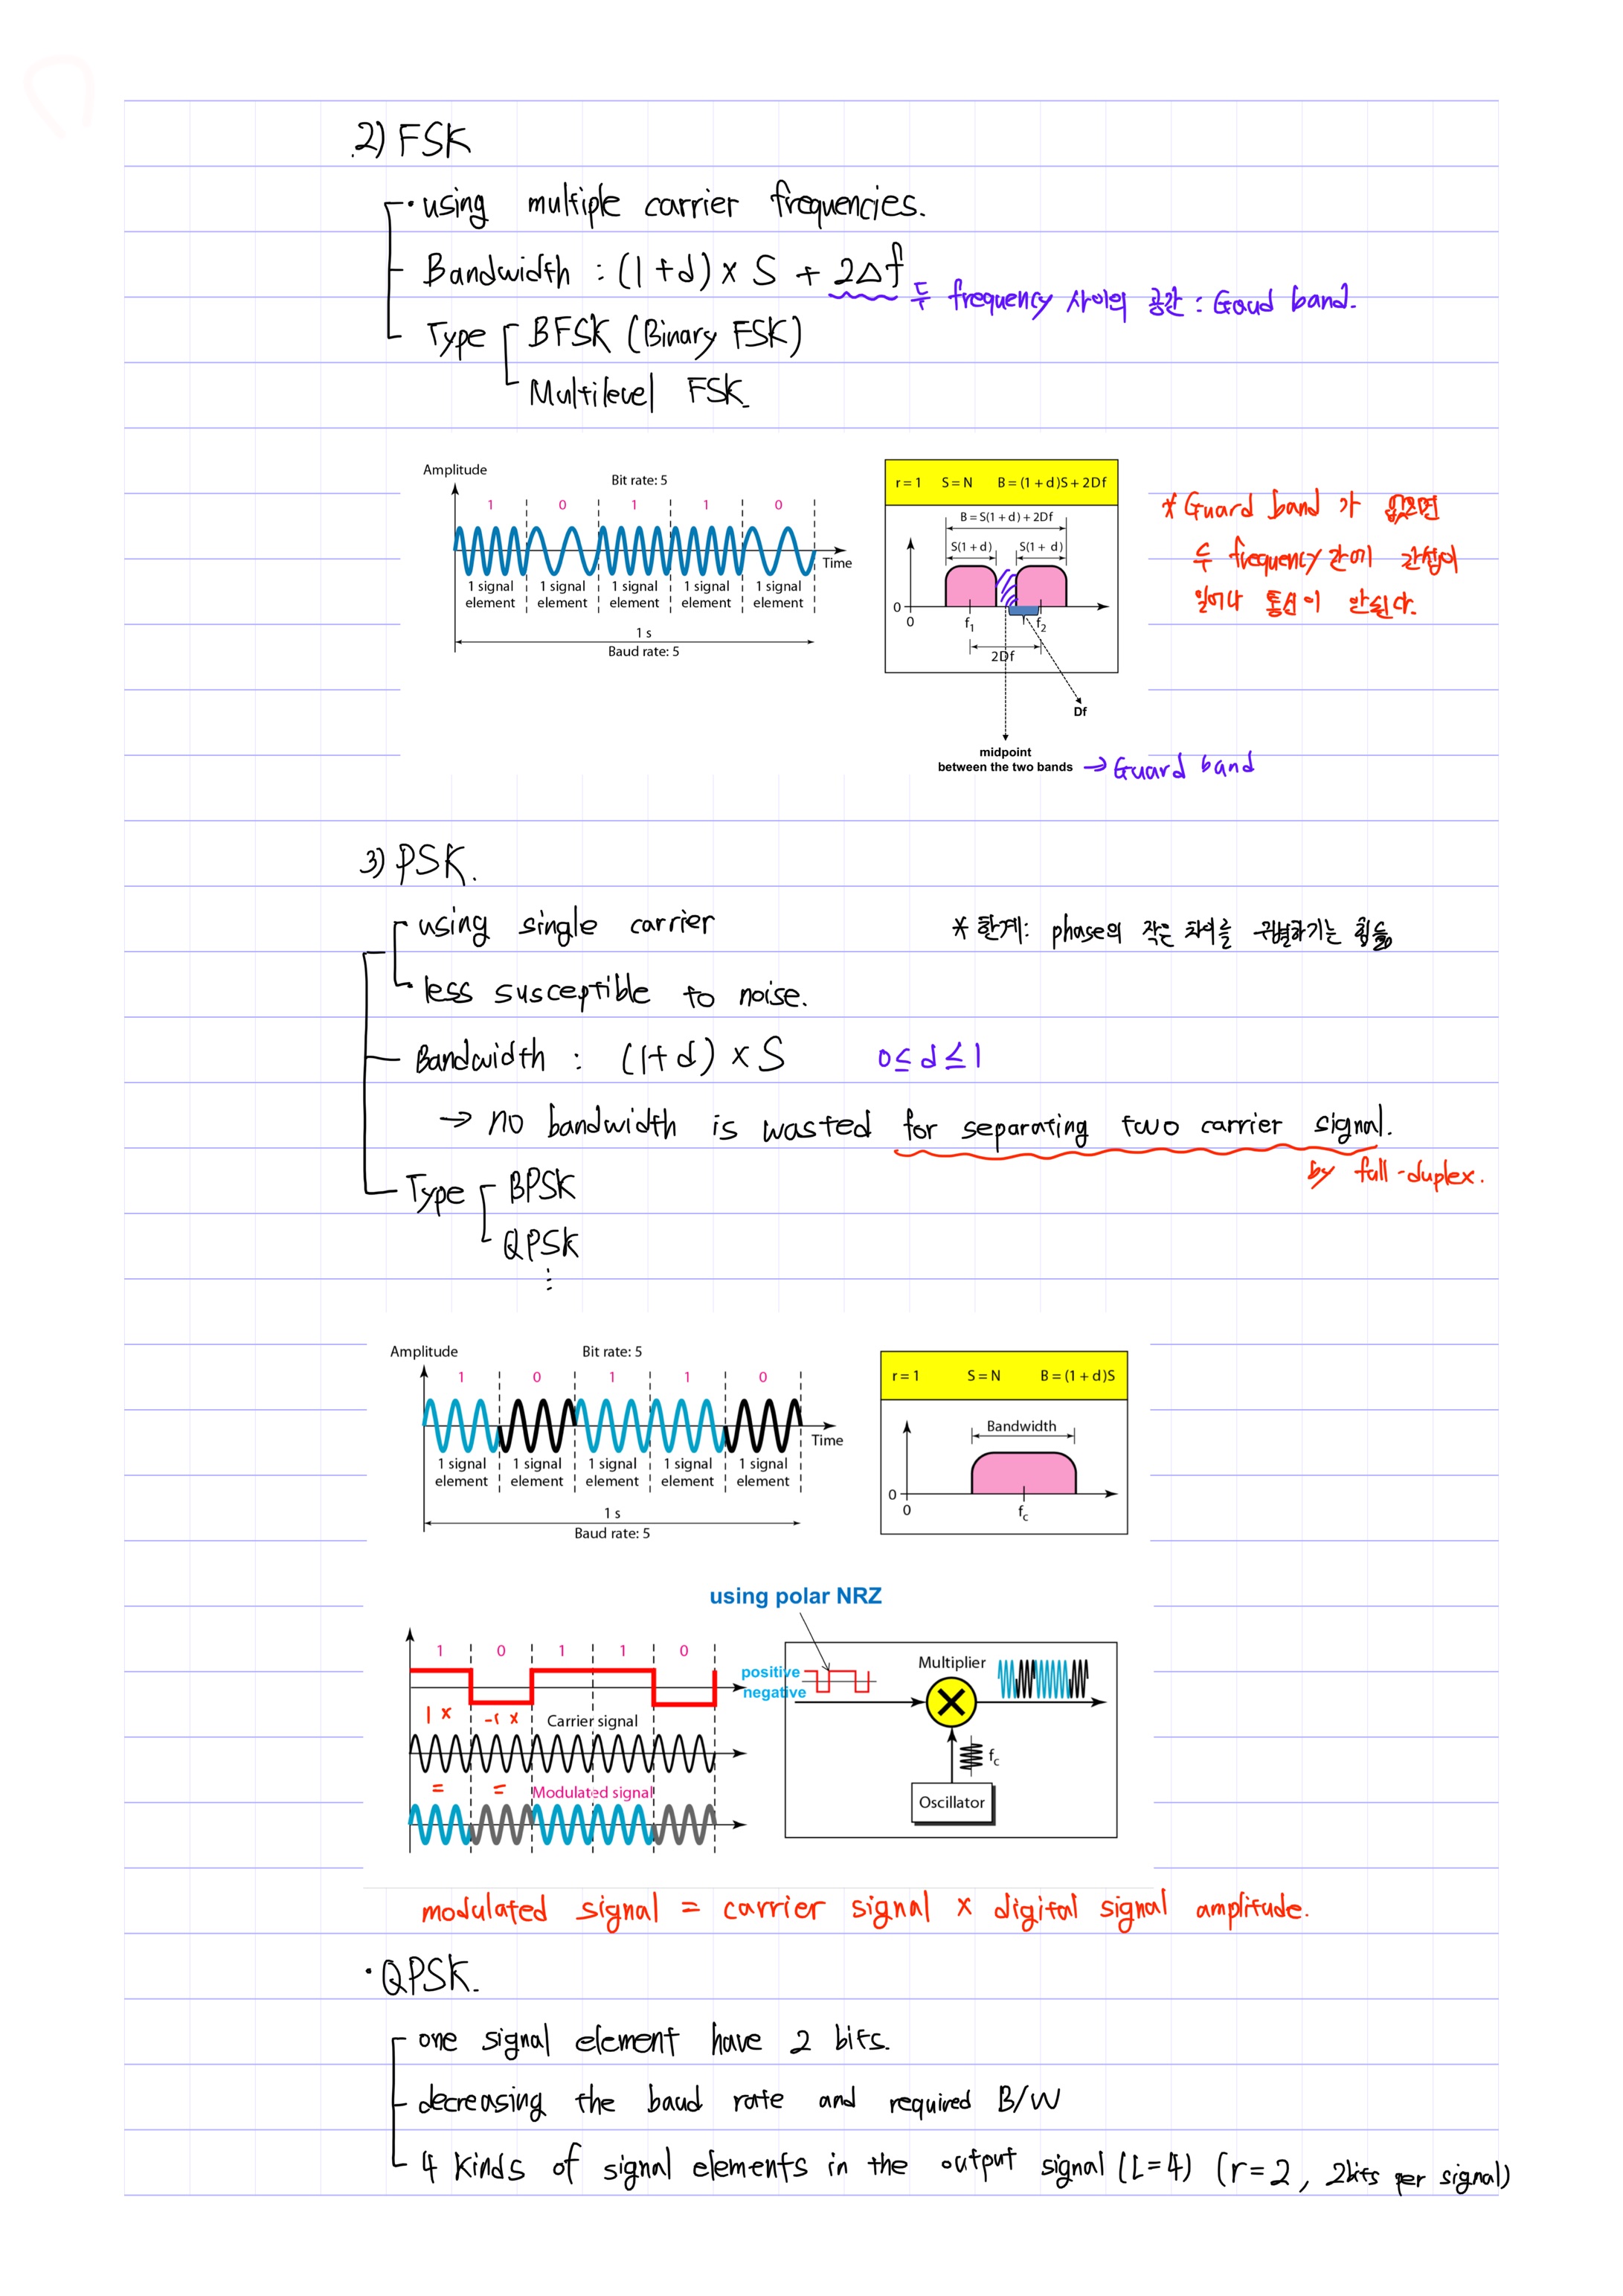 2) FSK
· using multiple carrier frequencies.
Bandwidth : (1+d) × S + 2△f
두 frequency 사이의 공간 : Gaud band.
Type BFSK (Binary FSK)
Multilevel FSK.
Amplitude
Bit rate: 5
1 0 1 1 0
Time
1 signal element 1 signal element 1 signal element 1 signal element 1 signal element
1 s
Baud rate: 5
r = 1 S = N B = (1 + d)S + 2Df
B = S(1 + d) + 2Df
S(1 + d) S(1 + d)
0
0 f1 f2
2Df
Df
midpoint
between the two bands → Guard band
* Guard band 가 없으면
두 frequency 간에 간섭이
일어나 통신이 안된다.
3) PSK.
· using single carrier
* 한계: phase의 작은 차이를 구별하기는 힘듦
· less susceptible to noise.
Bandwidth : (1+d) × S 0 ≤ d ≤ 1
→ no bandwidth is wasted for separating two carrier signal.
by full-duplex.
Type BPSK
QPSK
⋮
Amplitude
Bit rate: 5
1 0 1 1 0
Time
1 signal element 1 signal element 1 signal element 1 signal element 1 signal element
1 s
Baud rate: 5
r = 1 S = N B = (1 + d)S
Bandwidth
0
0 fc
using polar NRZ
1 0 1 1 0
positive
negative
1 × -1 ×
Carrier signal
= =
Modulated signal
Multiplier
fc
Oscillator
modulated signal = carrier signal × digital signal amplitude.
· QPSK.
one signal element have 2 bits.
decreasing the baud rate and required B/W
4 kinds of signal elements in the output signal (L=4) (r=2, 2bits per signal)